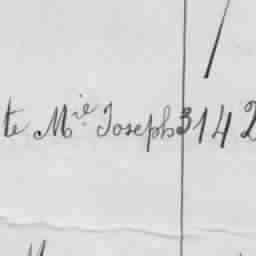 te M.ie Joseph 3142